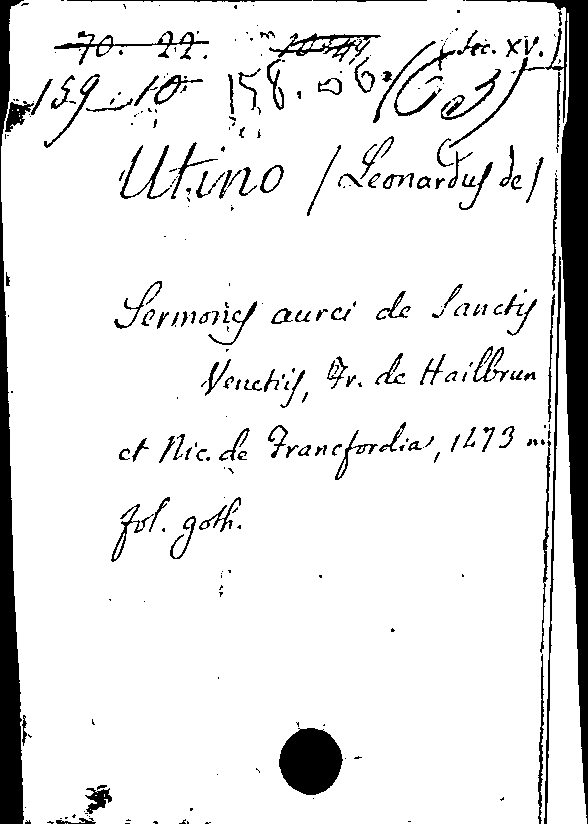 70. 22. (Sec. XV.)
159. 10 158.
Utino (Leonardus de)
Sermones aurei de Sanctis
Venetiis, Fr. de Hailbrun
et Nic. de Francfordia, 1473
fol. goth.